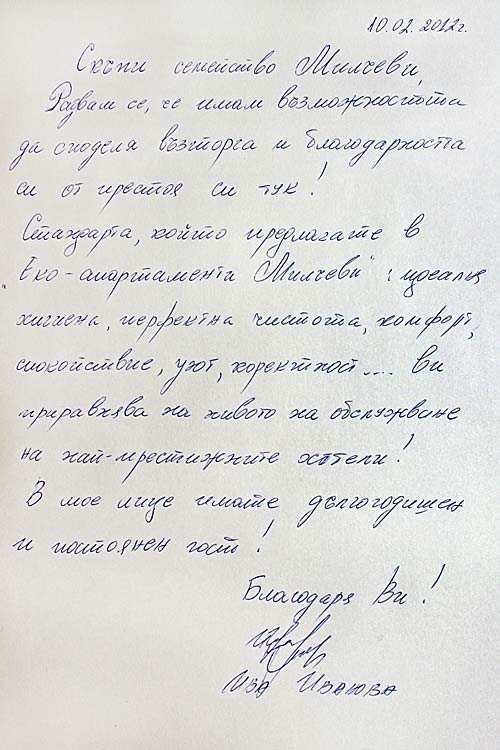 10.02.2012г.
Скъпи семейство Милчеви,
Радвам се, че имам възможността
да споделя възторга и благодарността
си от престоя си тук!
Стандарта, който предлагате в
"Еко-апартаменти Милчеви": идеална
хигиена, перфектна чистота, комфорт,
спокойствие, уют, коректност.... ви
приравнява на нивото на обслужване
на най-престижните хотели!
В мое лице имате дългогодишен
и постоянен гост!
Благодаря Ви!
Ива Иванова